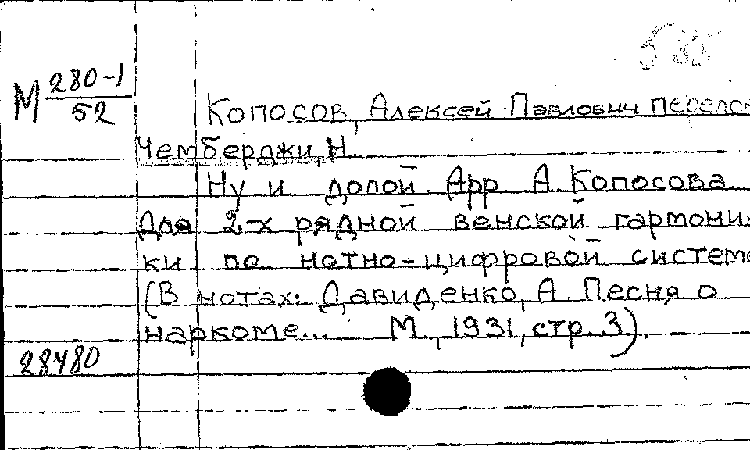 М 280-1
52
Копосов, Алексей Павлович перелож
Чемберджи, Н.
Ну и долой. Арр. А. Копосова
Для 2-х рядной венской гармони-
ки по нотно-цифровой системе
(В нотах: Давиденко, А. Песня о
наркоме... М., 1931, стр. 3).
28480